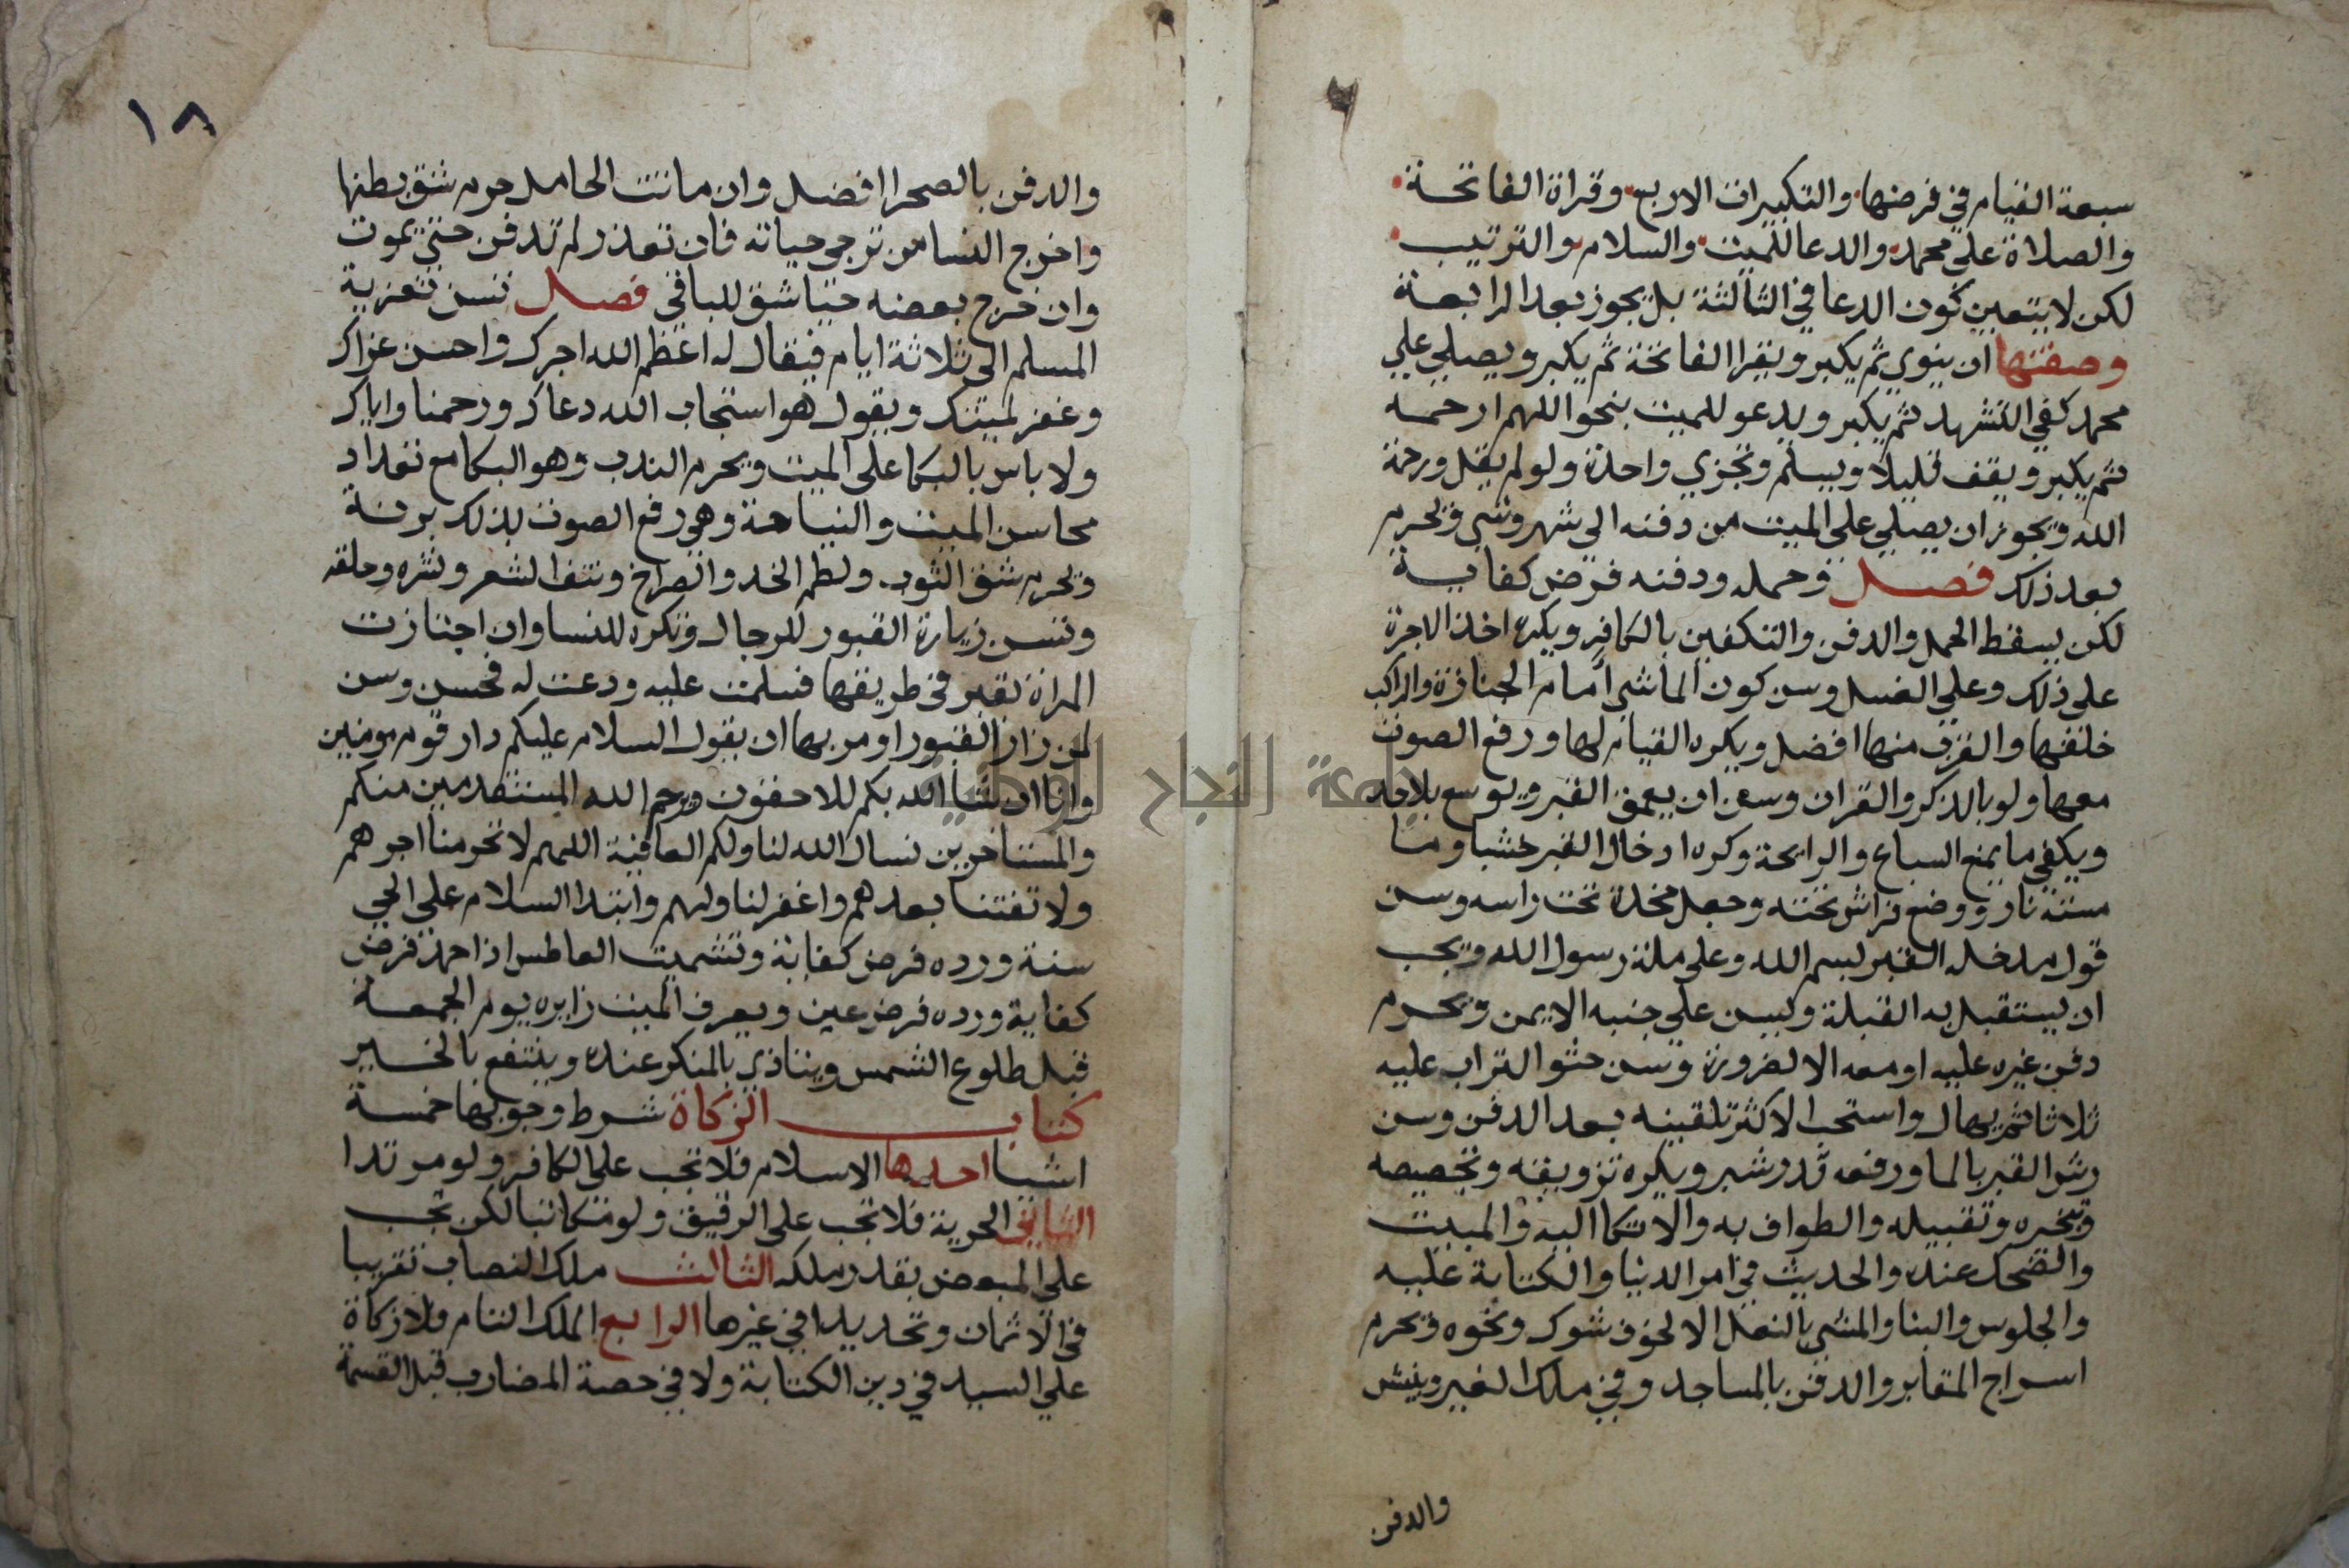 سبعة القيام في فرضها والتكبيرات الاربع وقراة الفاتحة
والصلاة علي محمد والدعا للميت والسلام والترتيب
لكن لا يتعين كون الدعا في الثالثة بل يجوز بعد الرابعة
وصفتها ان ينوي ثم يكبر ويقرا الفاتحة ثم يكبر ويصلي علي
محمد كفي التشهد ثم يكبر ويدعو للميت بنحو اللهم ارحمه
ثم يكبر ويقف قليلا ويسلم وتجزي واحدة ولو لم يقل ورحمة
الله ويجوز ان يصلي علي الميت من دفنه الي شهر وشي ويحرم
بعد ذلك فصل وحمله ودفنه فرض كفاية
لكن يسقط الحمل والدفن والتكفين بالكافر ويكره اخذ الاجرة
علي ذلك وعلي الغسل وسن كون الماشي أمام الجنازة والراكب
خلفها والقرب منها افضل ويكره القيام لها ورفع الصوت
معها ولو بالذكر والقران وسن ان يعمق القبر ويوسع بلا حد
ويكفي ما يمنع السباع والرايحة وكره ادخال القبر خشبا وما
مسته نار ووضع فراش تحته وجعل مخدة تحت راسه وسن
قول مدخله القبر بسم الله وعلي ملة رسول الله ويجب
ان يستقبل به القبلة ويسن علي جنبه الايمن ويحرم
دفن غيره عليه او معه الا لضرورة وسن حثو التراب عليه
ثلاثا ثم يهال واستحب الاكثر تلقينه بعد الدفن وسن
رش القبر بالما ورفعه قدر شبر ويكره تزويقه وتجصيصه
وتبخيره وتقبيله والطواف به والاتكا اليه والمبيت
والضحك عنده والحديث في امر الدنيا والكتابة عليه
والجلوس والبنا والمشي بالنعل الا لخوف شوك ونحوه ويحرم
اسراج المقابر والدفن بالمساجد وفي ملك الغير وينبش
والدفن
١٨
والدفن بالصحرا افضل وان ماتت الحامل حرم شق بطنها
واخرج النسا من ترجى حياته فان تعذر لم تدفن حتي يموت
وان خرج بعضه حيا شق للباقي فصل تسن تعزية
المسلم الى ثلاثة ايام فيقال له اعظم الله اجرك واحسن عزاك
وغفر لميتك ويقول هو استجاب الله دعاك ورحمنا واياك
ولا باس بالبكا على الميت ويحرم الندب وهو البكا مع تعداد
محاسن الميت والنياحة وهي رفع الصوت بذلك برنة
ويحرم شق الثوب ولطم الخد والصراخ ونتف الشعر ونشره وحلقه
وتسن زيارة القبور للرجال وتكره للنسا وان اجتازت
المراة بقبر في طريقها فسلمت عليه ودعت له فحسن وسن
لمن زار القبور او مر بها ان يقول السلام عليكم دار قوم مومنين
وانا ان شا الله بكم للاحقون ويرحم الله المستقدمين منكم
والمستاخرين نسال الله لنا ولكم العافية اللهم لا تحرمنا اجرهم
ولا تفتنا بعدهم واغفر لنا ولهم وابتدا السلام علي الحي
سنة ورده فرض كفاية وتشميت العاطس اذا حمد فرض
كفاية ورده فرض عين ويعرف الميت زايره يوم الجمعة
قبل طلوع الشمس ويتاذي بالمنكر عنده وينتفع بالخير
كتاب الزكاة شرط وجوبها خمسة
اشيا احدها الاسلام فلا تجب علي الكافر ولو مرتدا
الثاني الحرية فلا تجب علي الرقيق ولو مكاتبا لكن تجب
علي المبعض بقدر ملكه الثالث ملك النصاب تقريبا
في الاثمان وتحديدا في غيرها الرابع الملك التام فلا زكاة
علي السيد في دين الكتابة ولا في حصة المضارب قبل القسمة
جامعة النجاح الوطنية